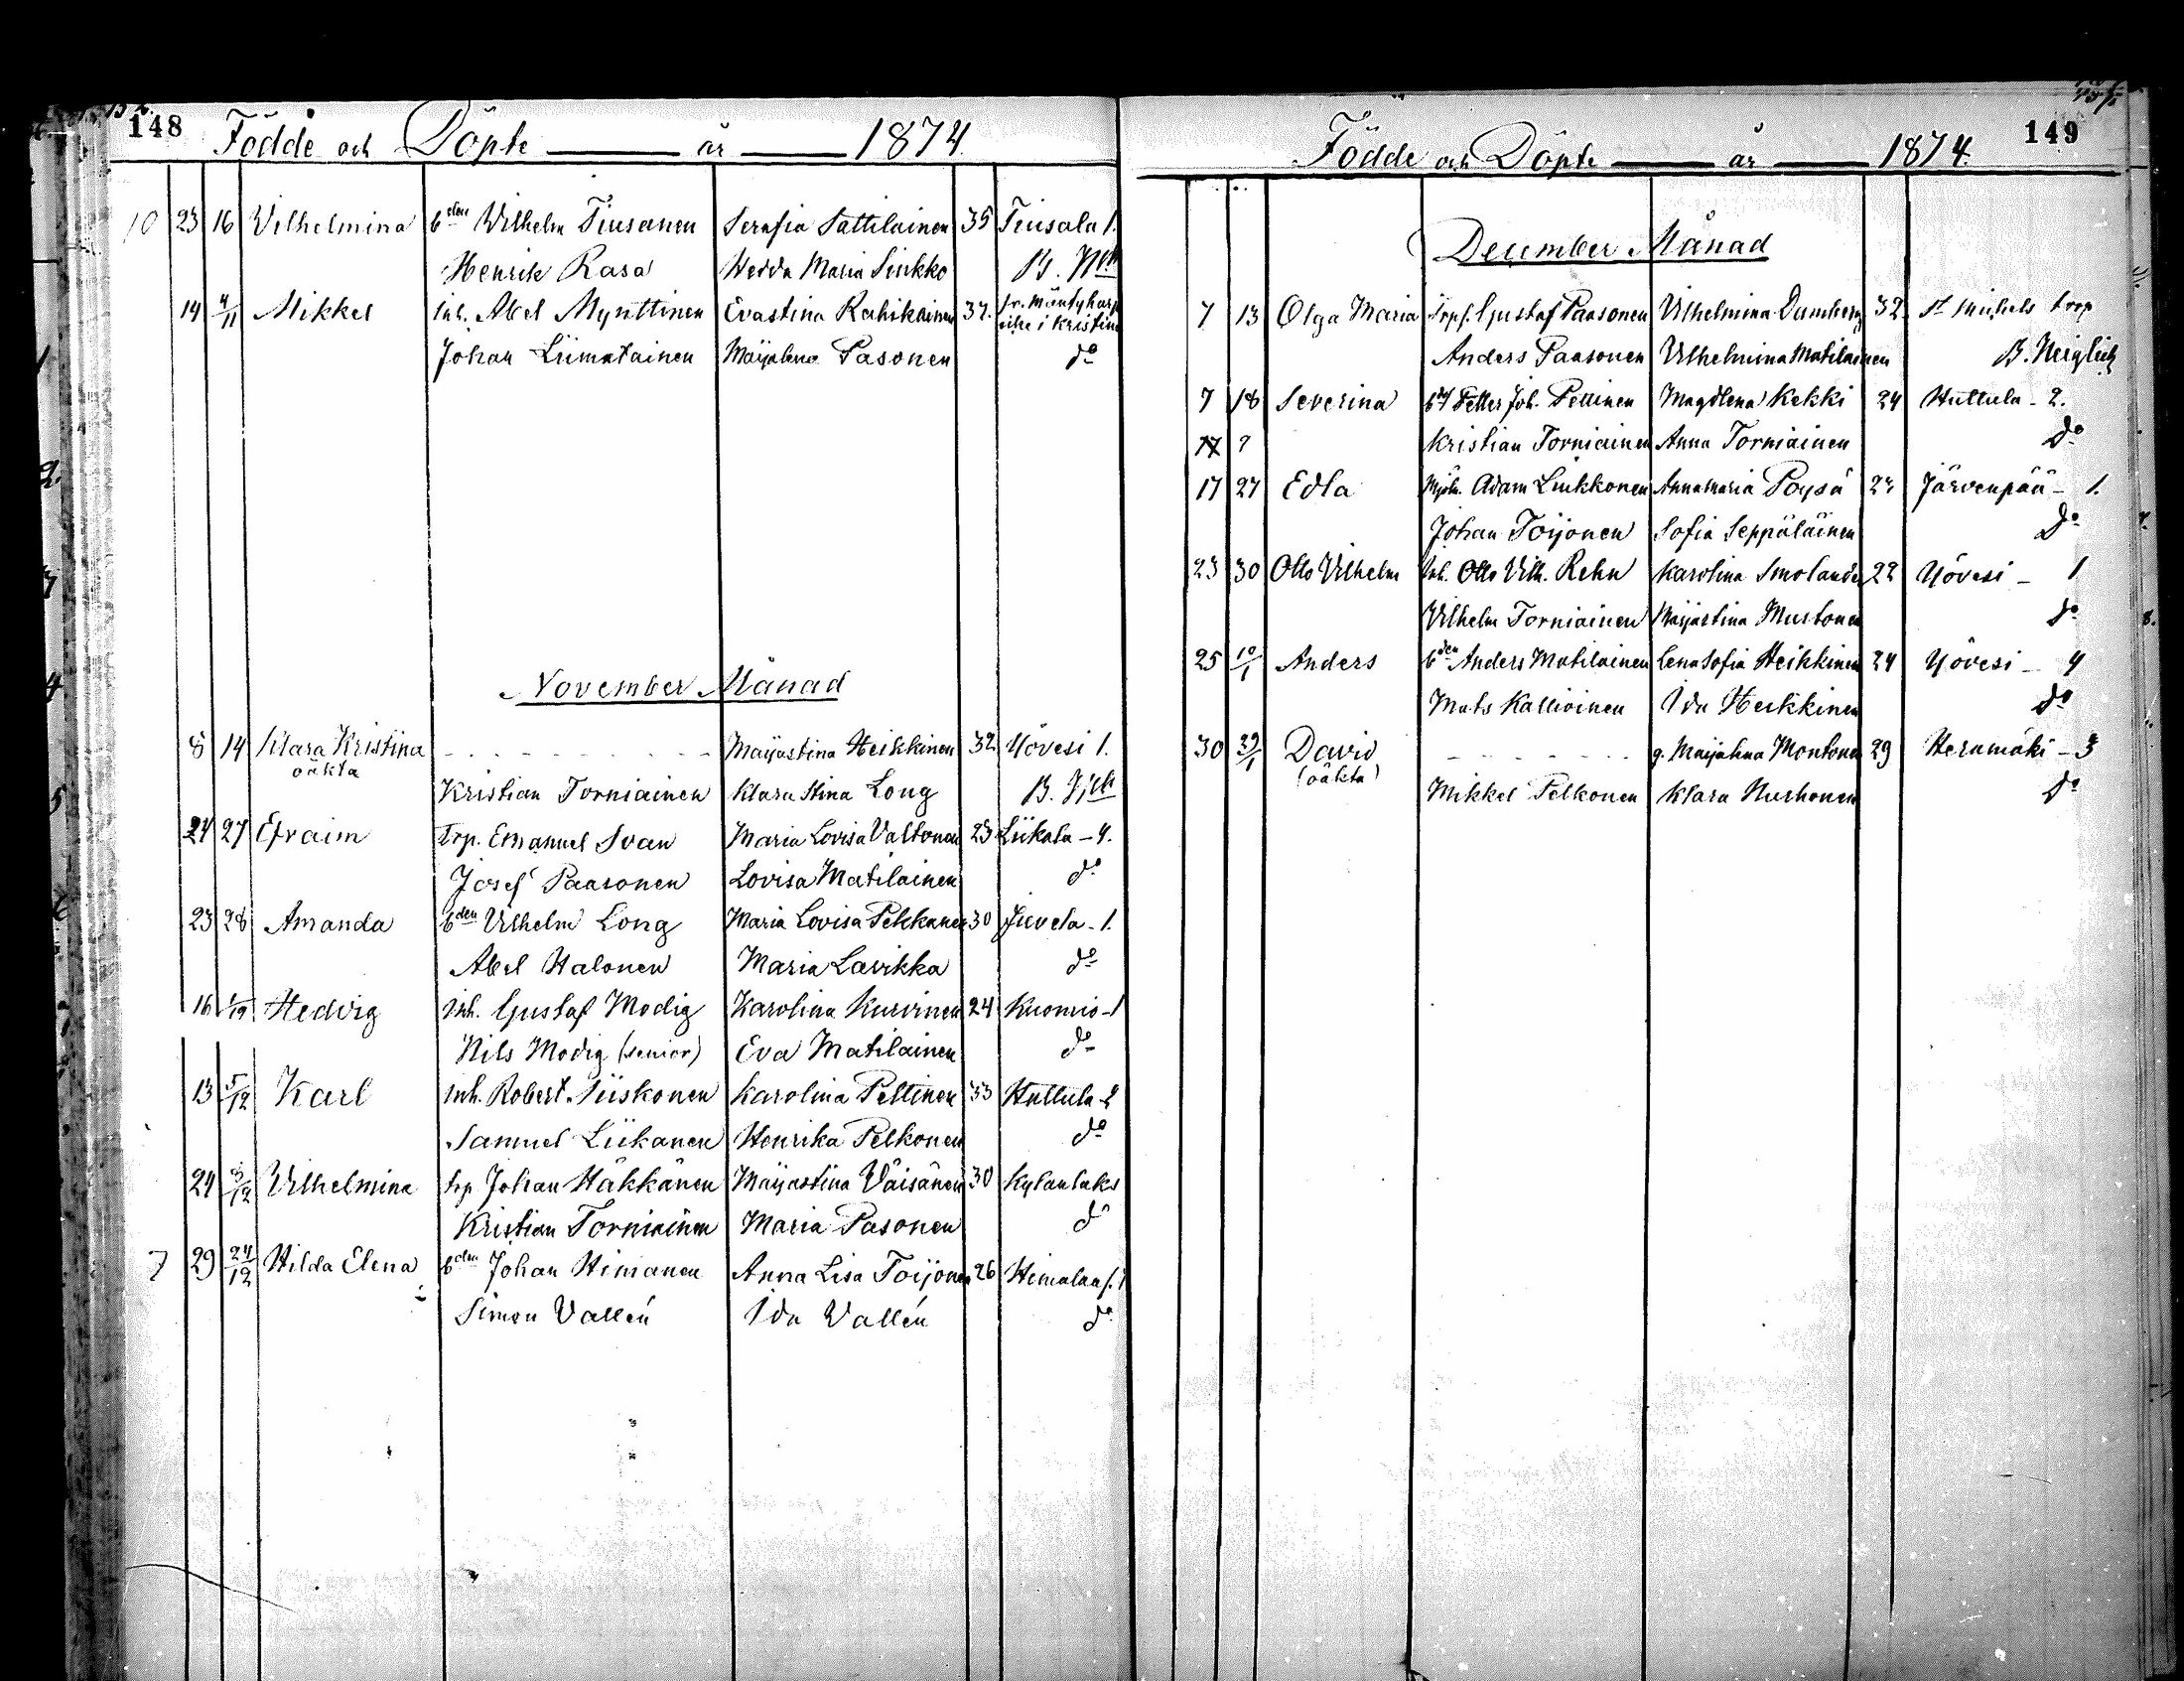 148
Födde och Döpte år 1874.
10 23 16 Vilhelmina bden Vilhelm Tiusanen Serafia Sattilainen 35 Tiusala 1.
Henrik Rasa Hedda Maria Sinkko
14 4/11 Mikkel Inh. Abel Mynttinen Evastina Rahikainen 37. fr. Mäntyharju
ej i Kristina
Johan Liimatainen Maijalena Pasonen do
November Månad
8 14 Klara Kristina Maijastina Heikkinen 32 Yövesi 1.
oäkta
Kristian Torniainen Klara Stina Long
24 27 Efraim Trp. Emanuel Svan Maria Lovisa Valtonen 23 Liikala - 4.
Josef Paasonen Lovisa Matilainen do
23 28 Amanda bden Vilhelm Long Maria Lovisa Pekkanen 30 Juvela - 1.
Abel Halonen Maria Lavikka do
16 1/12 Hedvig Inh. Gustaf Modig Karolina Kurvinen 24 Kuomio - 1
Nils Modig (senior) Eva Matilainen do
13 5/12 Karl Inh. Robert Siiskonen Karolina Pettinen 33 Huttula - 2
Samuel Liikanen Henrika Pelkonen do
24 /12 Vilhelmina trp Johan Häkkänen Maijastina Väisänen 30 Kylänlaks
Kristian Torniainen Maria Pasonen do
7 29 24/12 Hilda Elena bden Johan Himanen Anna Lisa Toijonen 26 Himalans. 1
Simon Vallén Ida Vallén do
149
Födde och Döpte år 1874.
December Månad
7 13 Olga Maria Trp. Gustaf Paasonen Vilhelmina Dumberg 32 St Michels torp
Anders Paasonen Vilhelmina Matilainen B. Neiglick
7 18 Severina Petter Joh. Pettinen Magdlena Kekki 24 Huttula - 2.
17 7 Kristian Torniainen Anna Torniainen do
17 27 Edla Adam Liukkonen Annamaria Pöysä 27 Järvenpää - 1.
Johan Toijonen Sofia Seppäläinen do
23 30 Otto Vilhelm Inh. Otto Vilh. Rehn Karolina Smolander 22 Yövesi - 1
Vilhelm Torniainen Maijastina Mustonen do
25 10/1 Anders bden Anders Matilainen Lena Sofia Heikkinen 24 Yövesi - 4
Mats Kallioinen Ida Heikkinen do
30 29/1 David g. Maijalena Montonen 29 Heramäki - 3
(oäkta)
Mikkel Pelkonen Klara Hurhonen do